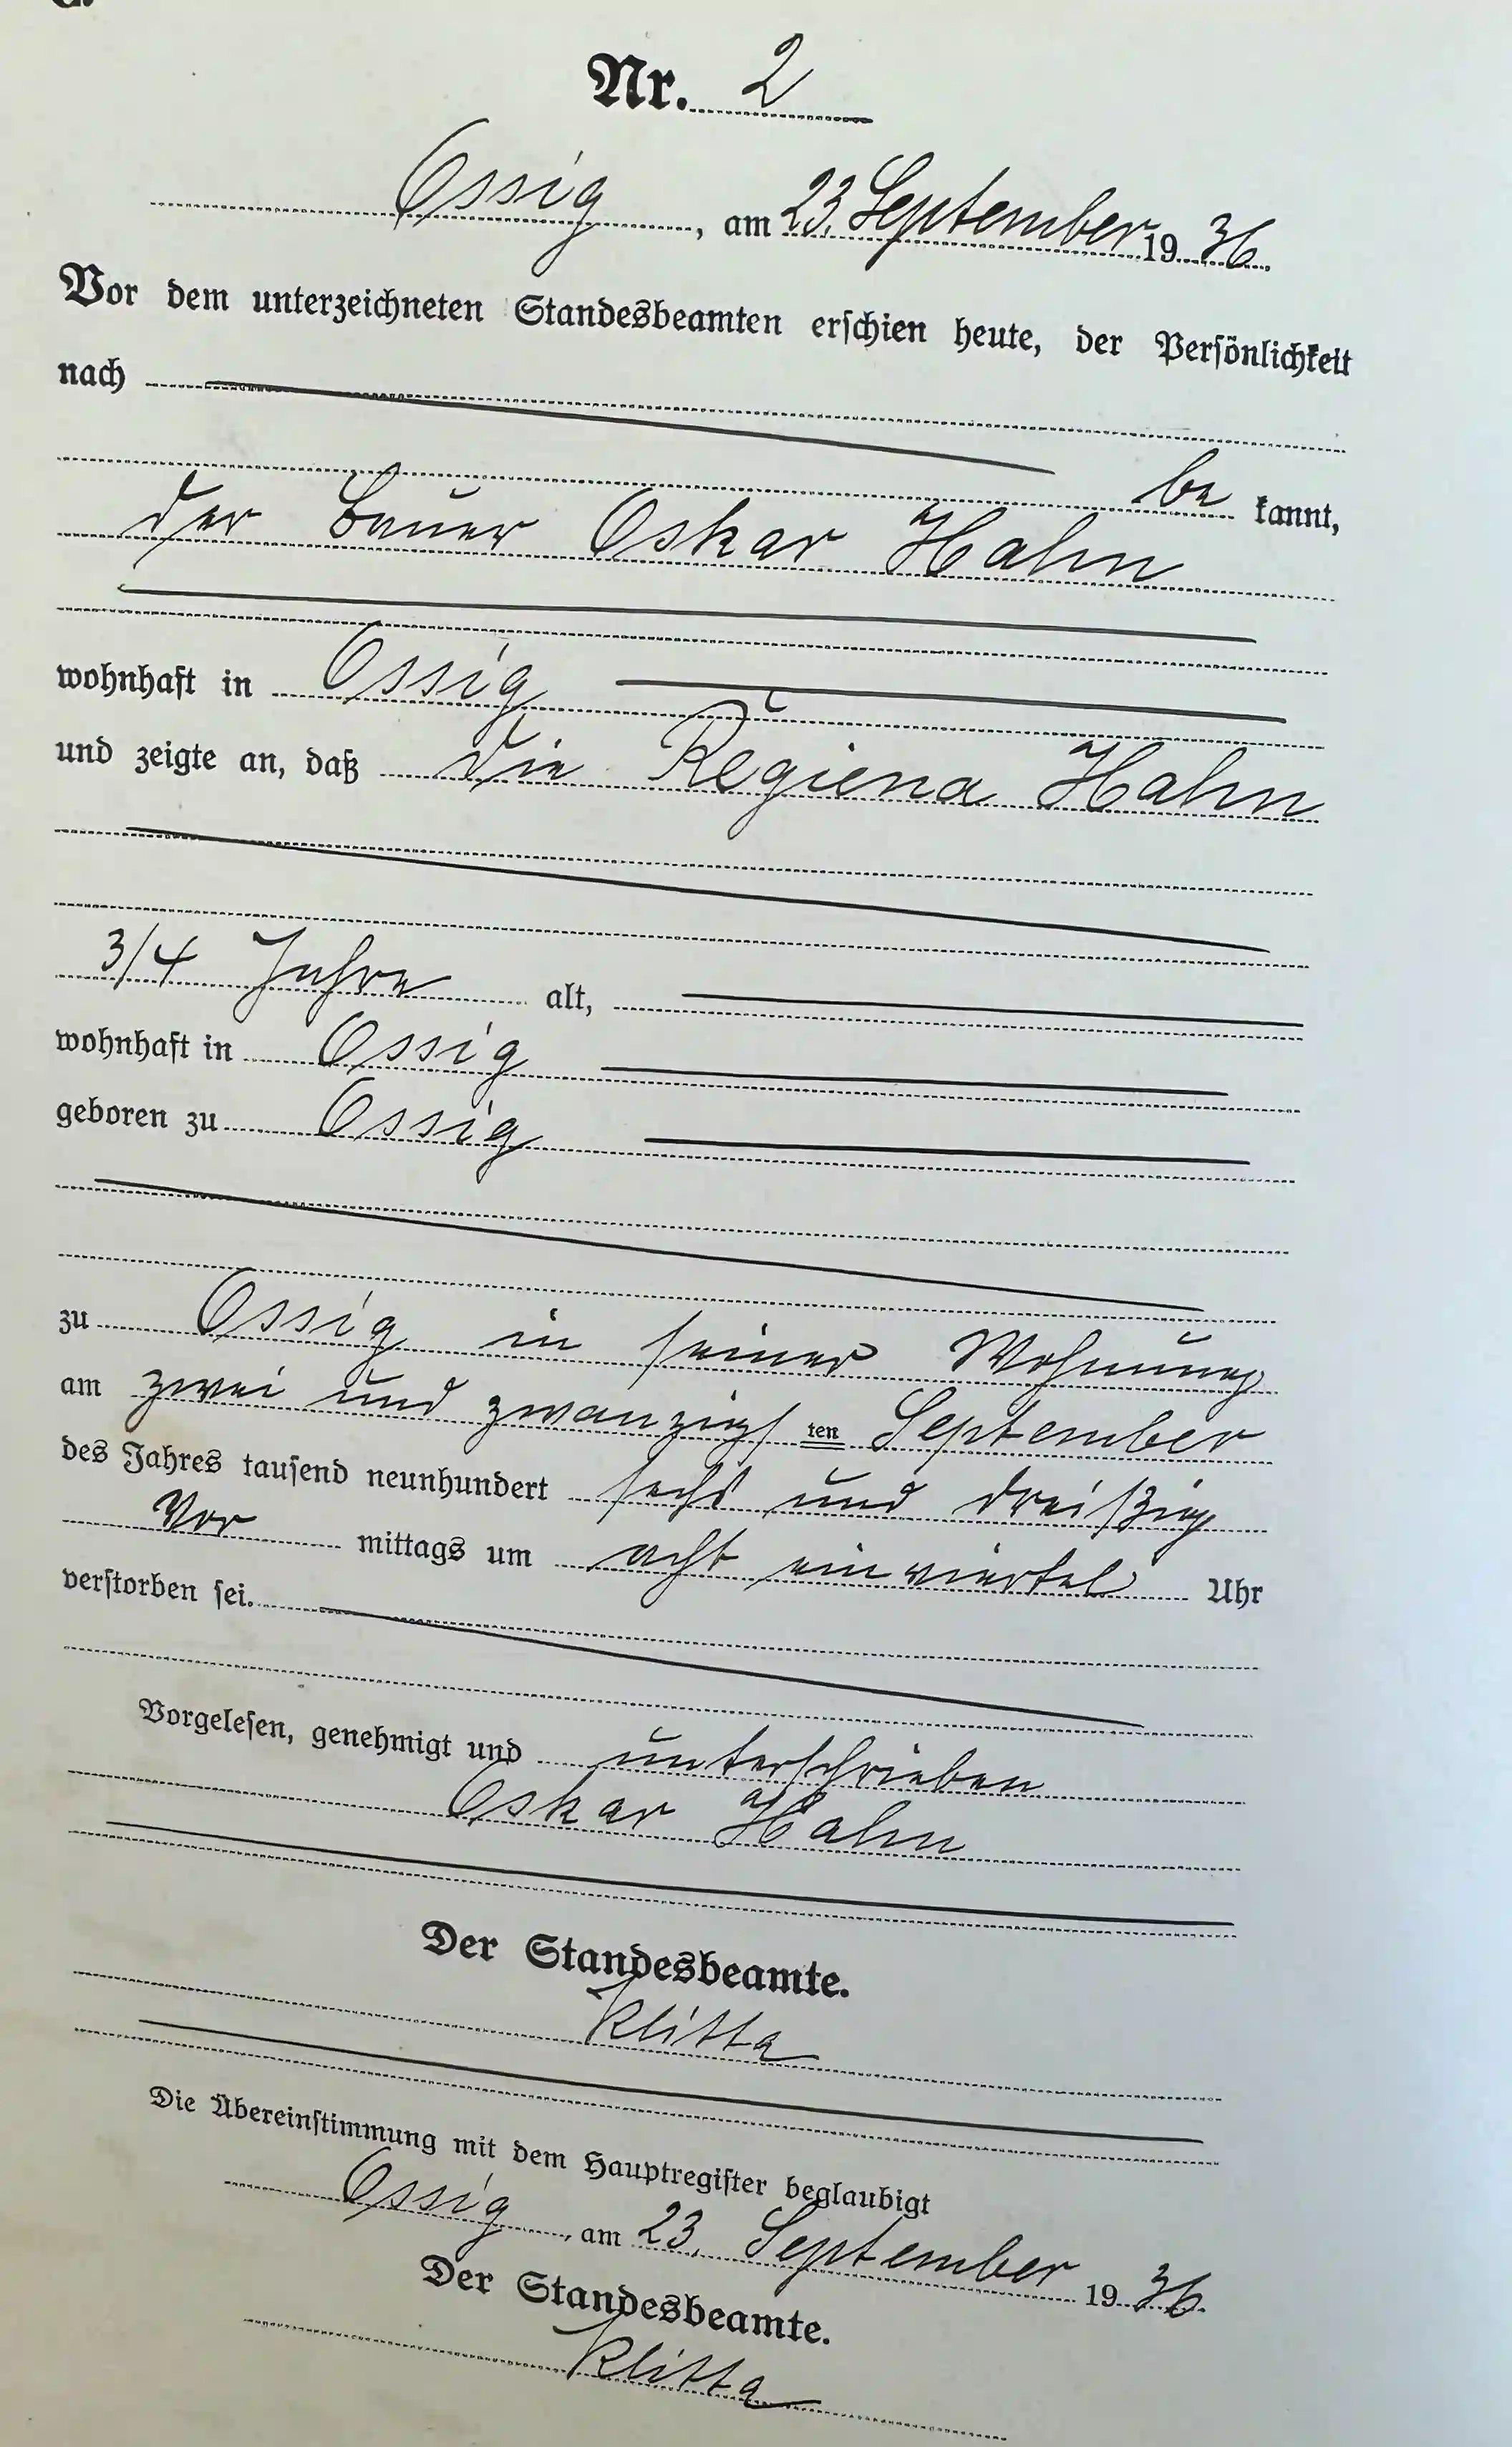 C.
Nr. 2
Ossig, am 23. September 1936.
Vor dem unterzeichneten Standesbeamten erschien heute, der Persönlichkeit
nach
be kannt,
der Bauer Oskar Hahn
wohnhaft in Ossig
und zeigte an, daß die Regiena Hahn
3/4 Jahre alt,
wohnhaft in Ossig
geboren zu Ossig
zu Ossig in seiner Wohnung
am zwei und zwanzigs ten September
des Jahres tausend neunhundert sechs und dreißig
Vor mittags um acht ein viertel Uhr
verstorben sei.
Vorgelesen, genehmigt und unterschrieben
Oskar Hahn
Der Standesbeamte.
Klitta
Die Übereinstimmung mit dem Hauptregister beglaubigt
Ossig, am 23. September 1936.
Der Standesbeamte.
Klitta